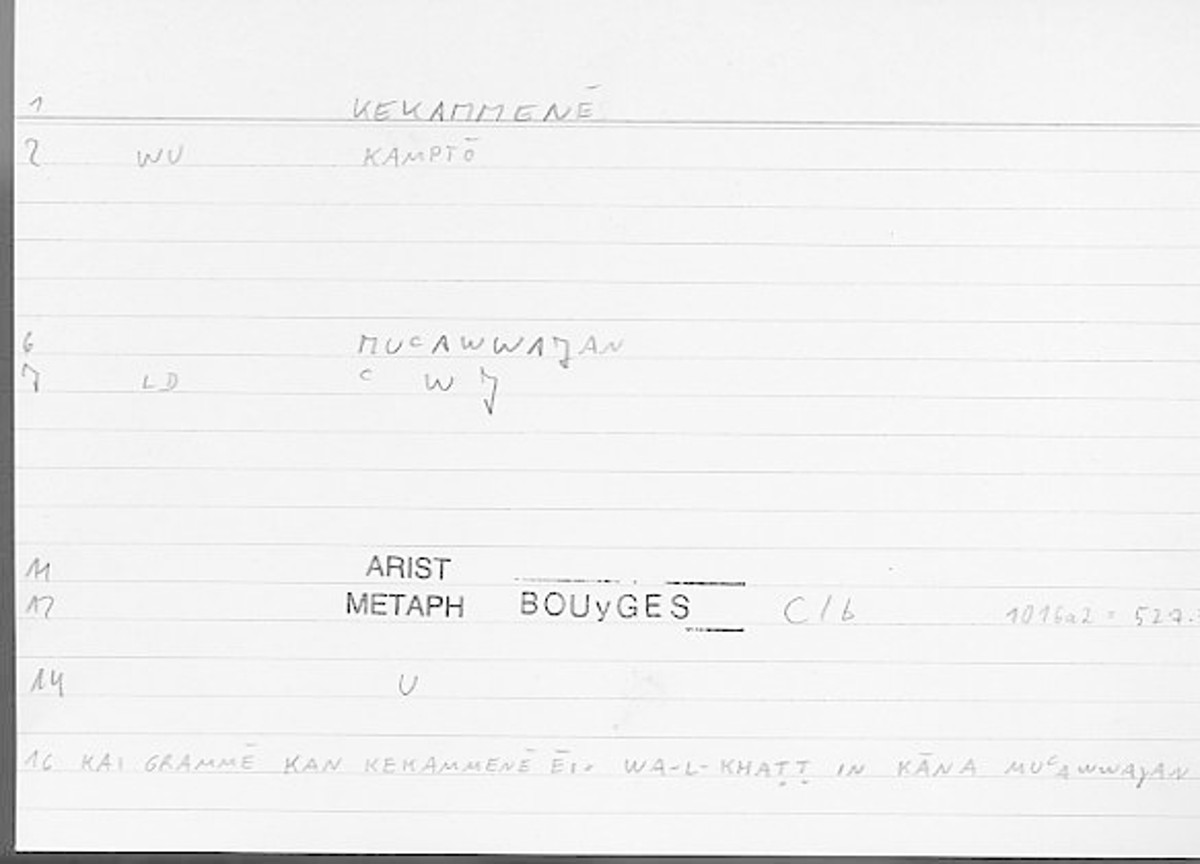 1 KEKAMMENĒ
2 WU KAMPTŌ
6 MUCAWWAJAN
7 LD C W J
11 ARIST
12 METAPH BOUyGES C/b 1016a2 = 527.
14 U
16 KAI GRAMMĒ KAN KEKAMMENĒ ĒI. WA-L-KHAṬṬ IN KĀNA MUCAWWAJAN